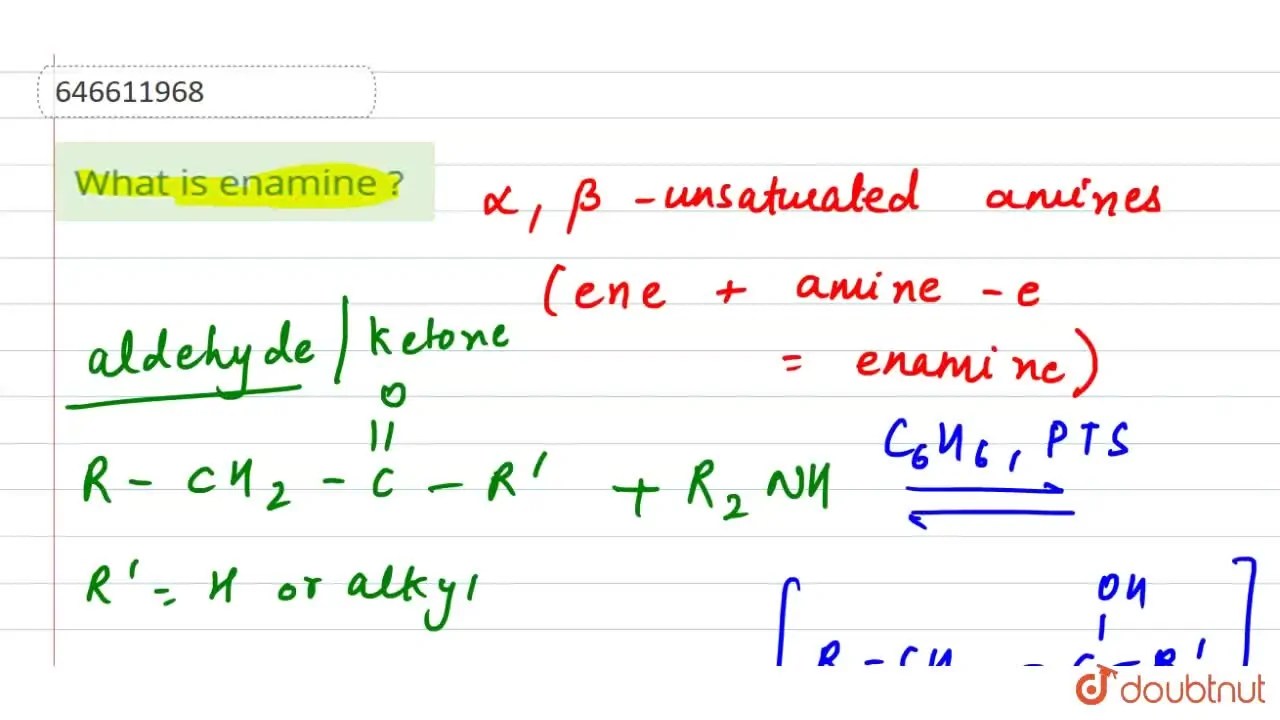 646611968
What is enamine ?
α, β - unsaturated amines
(ene + amine - e
= enamine)
aldehyde / ketone
O
||
R - CH2 - C - R' + R2NH
C6H6, PTS
R' = H or alkyl
OH
R - CH - C - R'
doubtnut